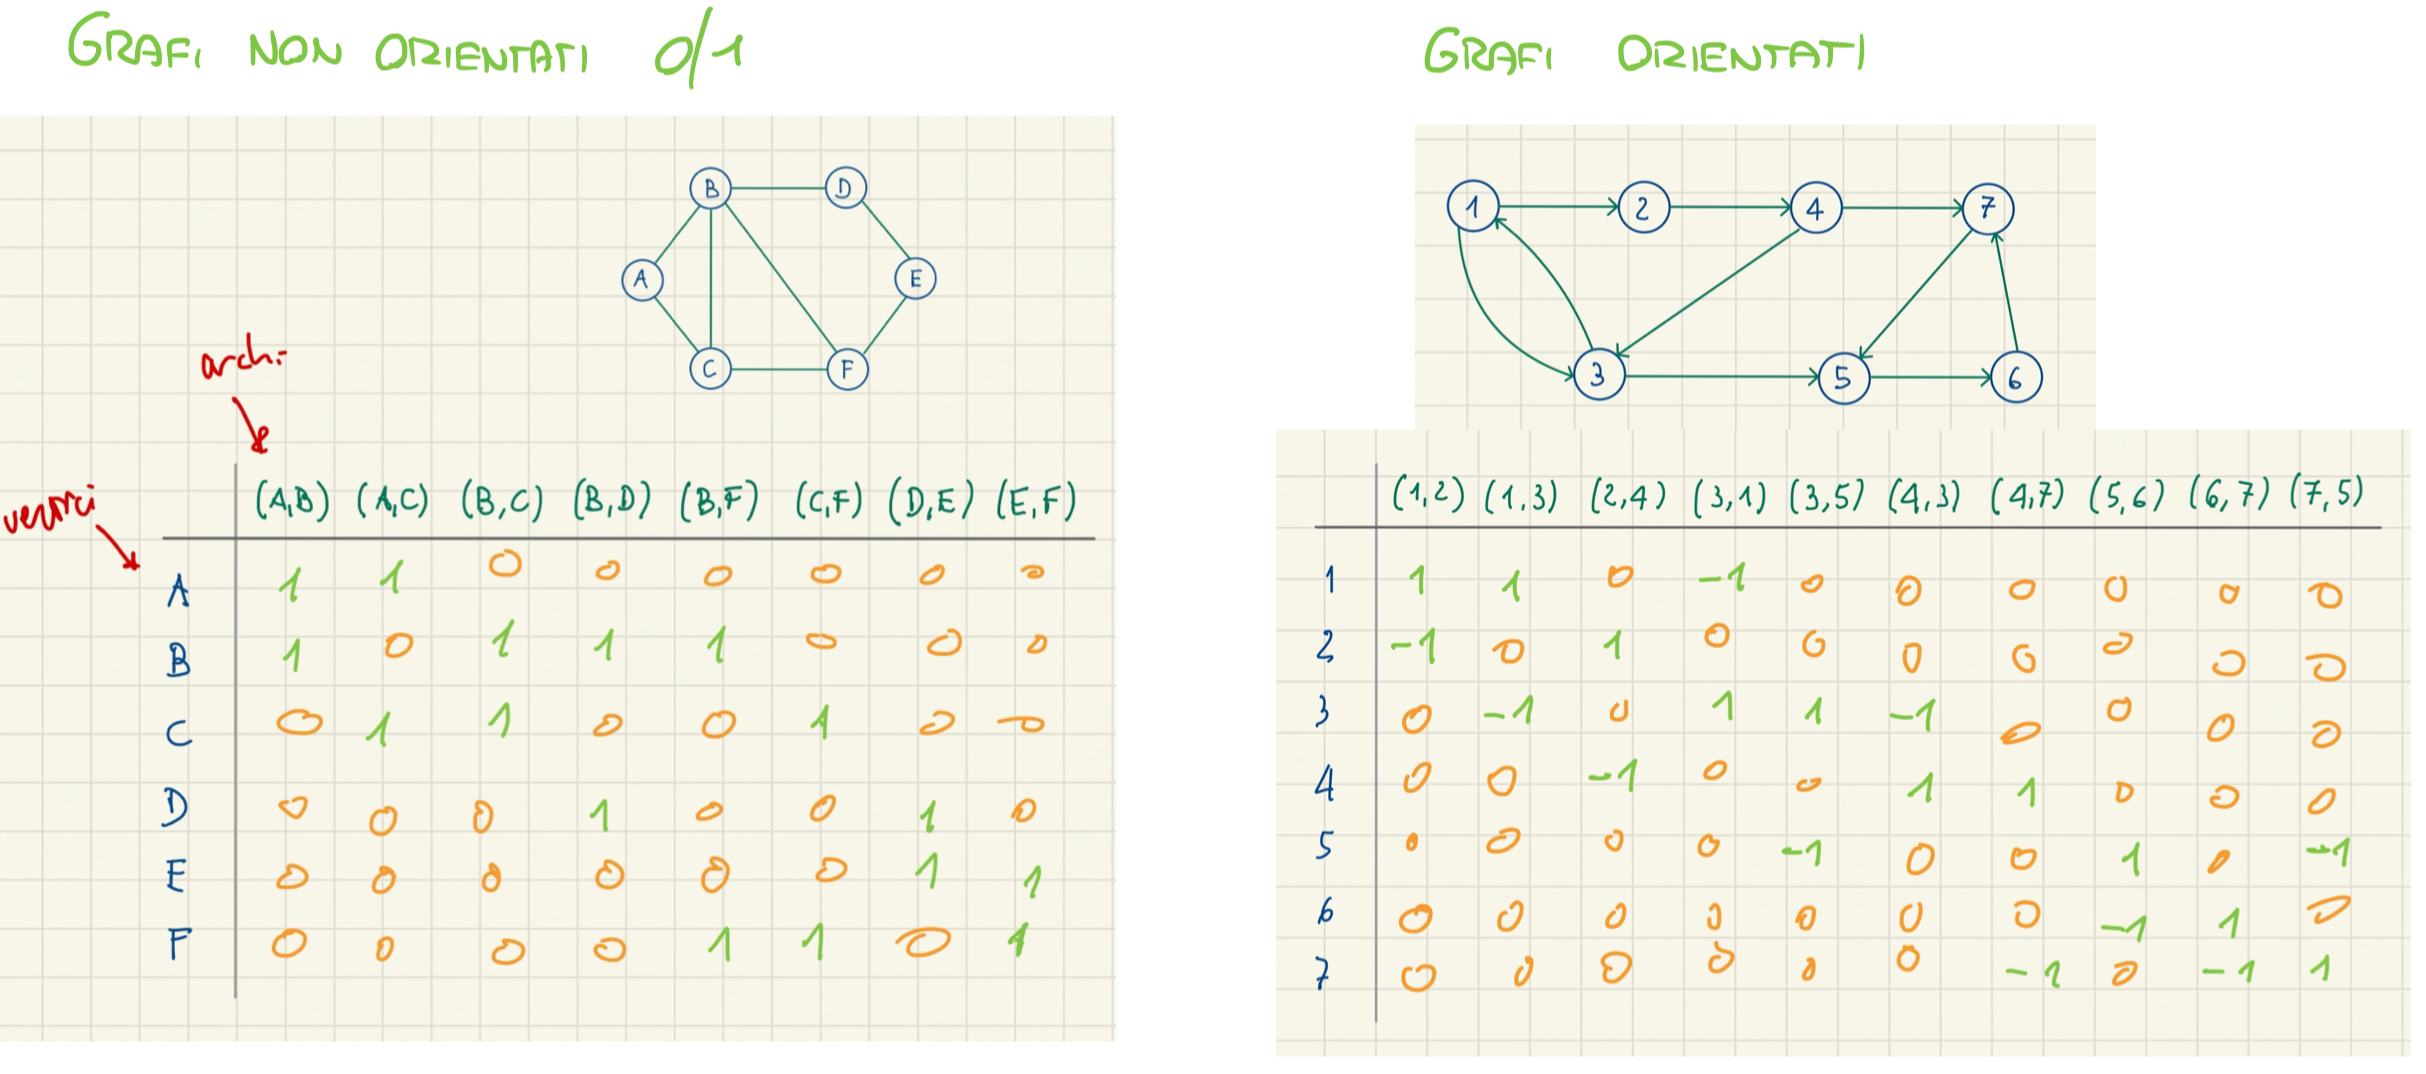 GRAFI NON ORIENTATI 0/1
B D
A E
C F
archi
vertici
(A,B) (A,C) (B,C) (B,D) (B,F) (C,F) (D,E) (E,F)
A 1 1 0 0 0 0 0 0
B 1 0 1 1 1 0 0 0
C 0 1 1 0 0 1 0 0
D 0 0 0 1 0 0 1 0
E 0 0 0 0 0 0 1 1
F 0 0 0 0 1 1 0 1
GRAFI ORIENTATI
1 2 4 7
3 5 6
(1,2) (1,3) (2,4) (3,1) (3,5) (4,3) (4,7) (5,6) (6,7) (7,5)
1 1 1 0 -1 0 0 0 0 0 0
2 -1 0 1 0 0 0 0 0 0 0
3 0 -1 0 1 1 -1 0 0 0 0
4 0 0 -1 0 0 1 1 0 0 0
5 0 0 0 0 -1 0 0 1 0 -1
6 0 0 0 0 0 0 0 -1 1 0
7 0 0 0 0 0 0 -1 0 -1 1